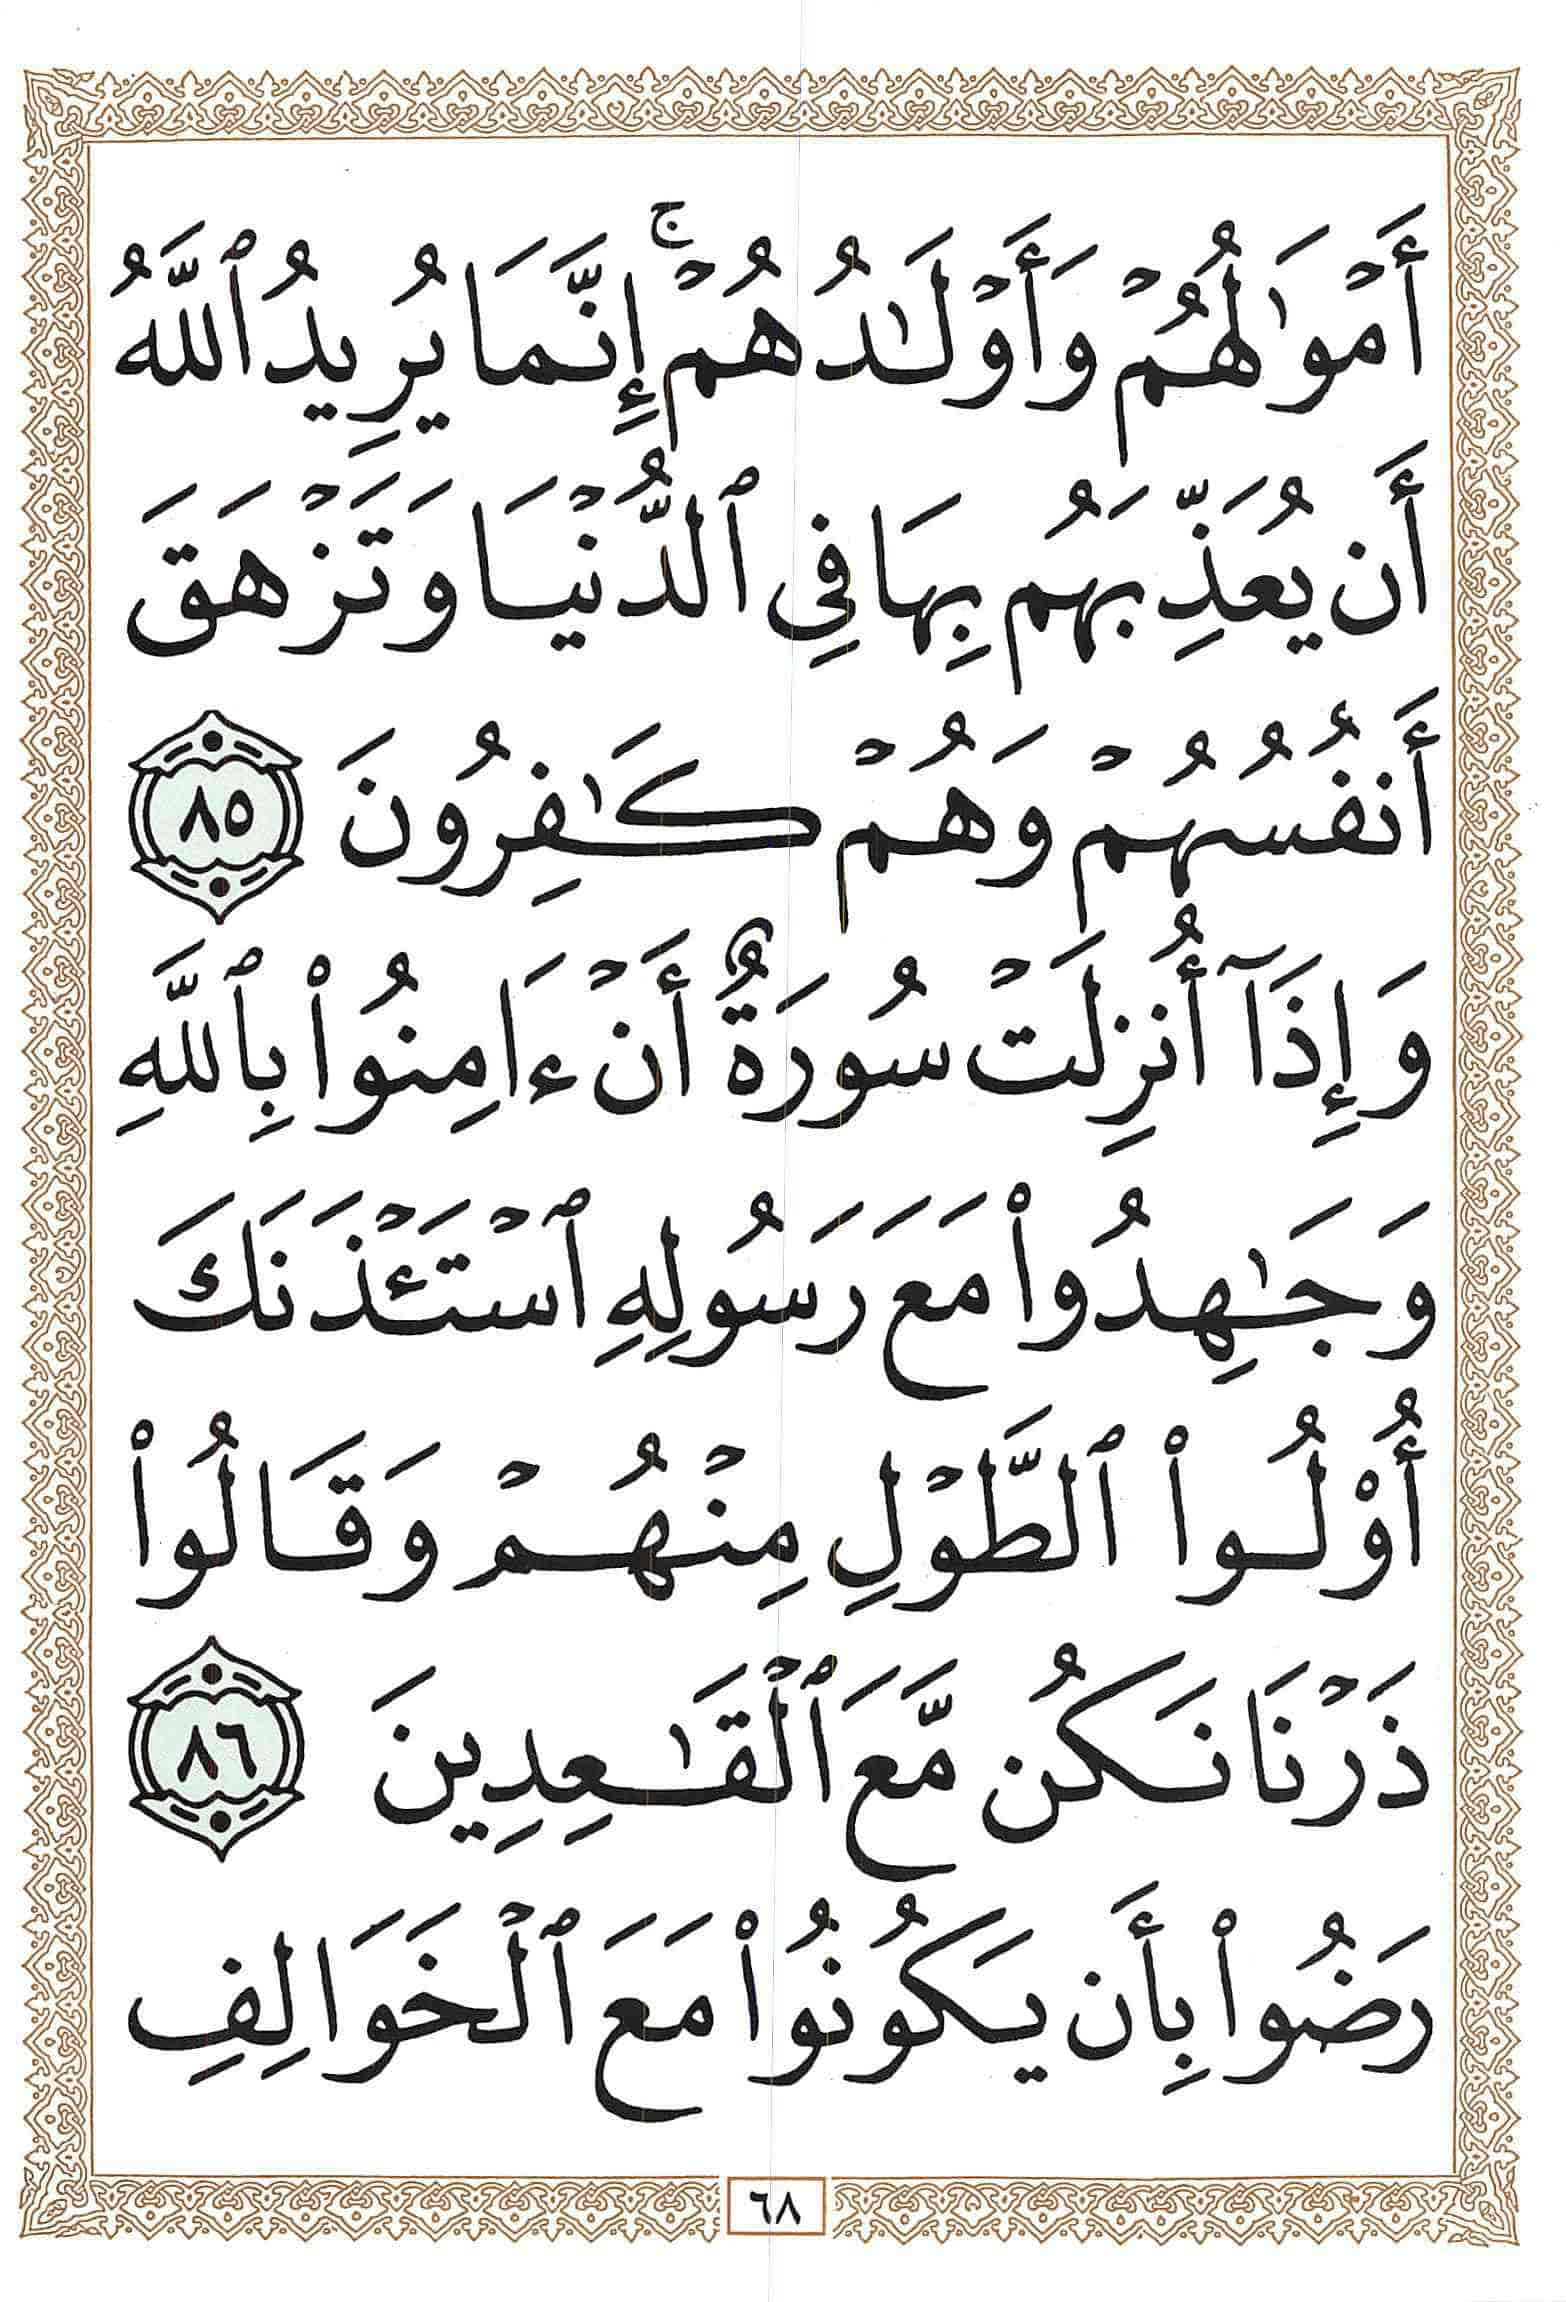 أَمْوَٰلُهُمْ وَأَوْلَـٰدُهُمْ ۚ إِنَّمَا يُرِيدُ ٱللَّهُ
أَن يُعَذِّبَهُم بِهَا فِى ٱلدُّنْيَا وَتَزْهَقَ
أَنفُسُهُمْ وَهُمْ كَـٰفِرُونَ ٨٥
وَإِذَآ أُنزِلَتْ سُورَةٌ أَنْ ءَامِنُوا۟ بِٱللَّهِ
وَجَـٰهِدُوا۟ مَعَ رَسُولِهِ ٱسْتَـْٔذَنَكَ
أُو۟لُوا۟ ٱلطَّوْلِ مِنْهُمْ وَقَالُوا۟
ذَرْنَا نَكُن مَّعَ ٱلْقَـٰعِدِينَ ٨٦
رَضُوا۟ بِأَن يَكُونُوا۟ مَعَ ٱلْخَوَالِفِ
٦٨